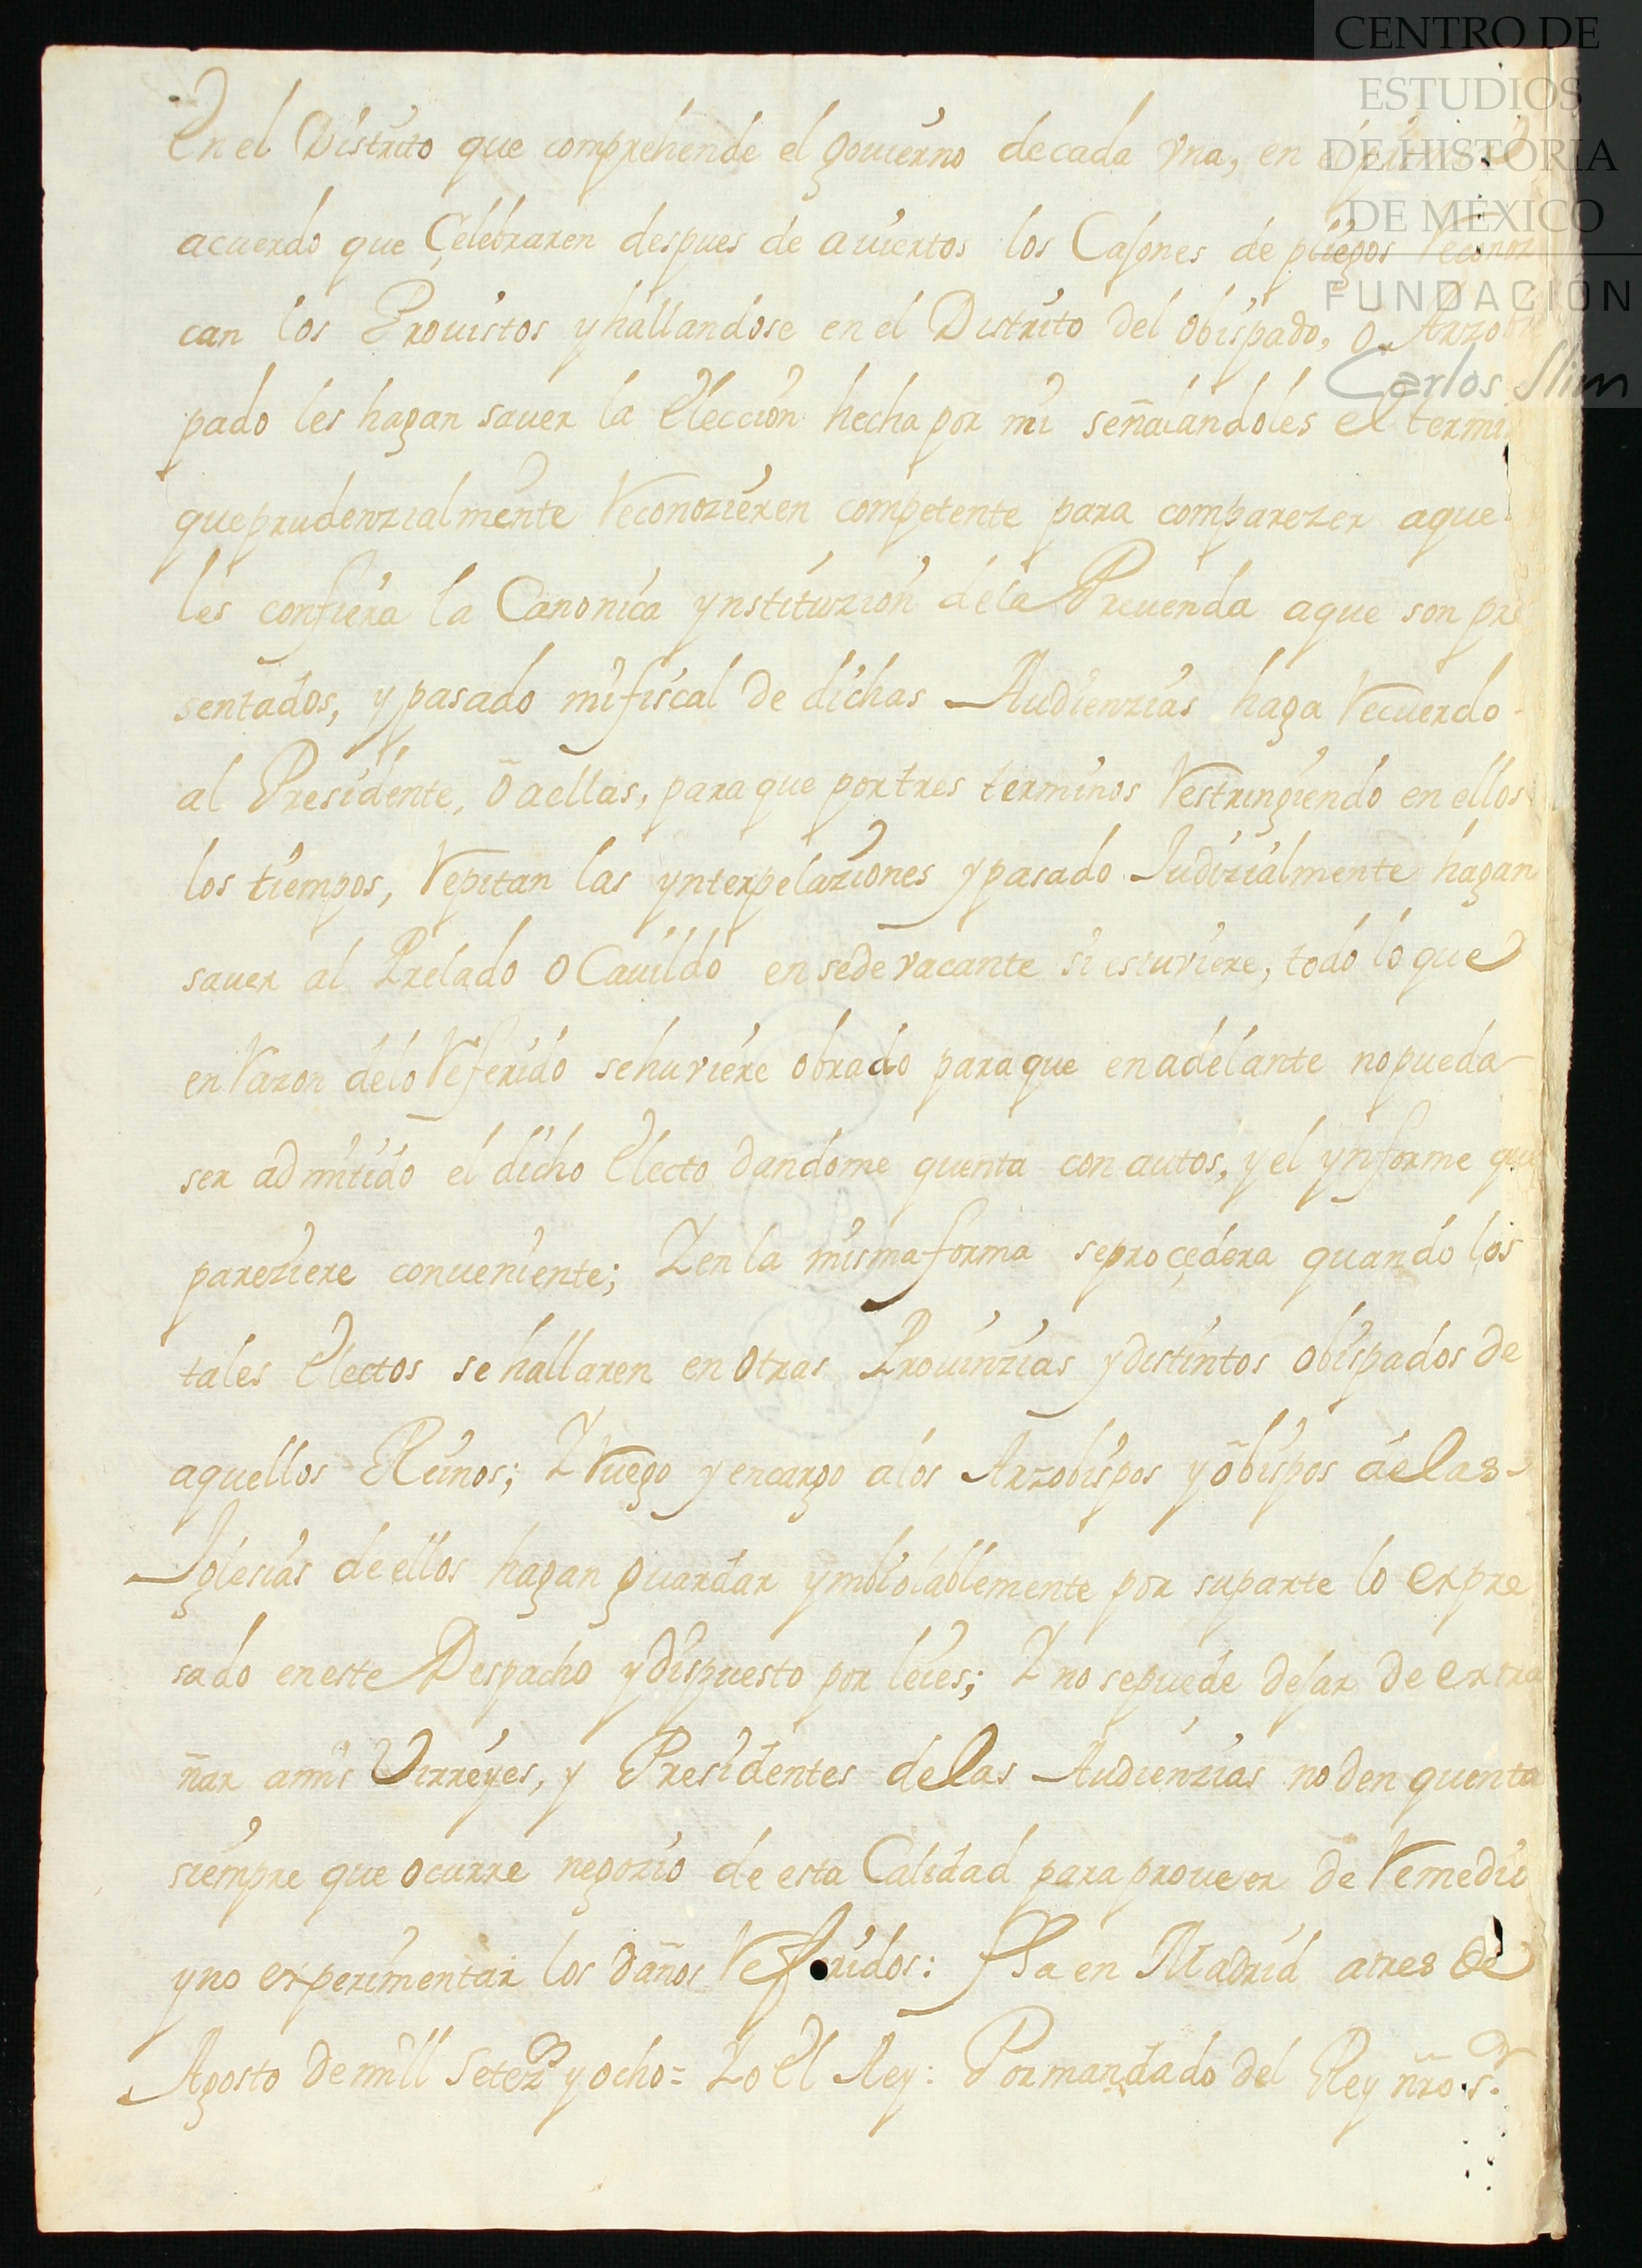 CENTRO DE
ESTUDIOS
DE HISTORIA
DE MÉXICO
FUNDACIÓN
Carlos Slim
En el Distrito que comprehende el govierno de cada vna, en el
acuerdo que Çelebraren despues de auiertos los Cajones de pliegos Reconoz
can los Prouistos y hallandose en el Distrito del obispado, o Arzobis
pado les hagan sauer la Elección hecha por mi señalandoles el termi
que prudenzialmente Reconozieren competente para comparezer a que
les confiera la Canonica ynstituzion dela Preuenda a que son pre
sentados, y pasado mi fiscal de dichas Audienzias haga Recuerdo
al Presidente, õ a ellas, para que por tres terminos Restringiendo en ellos
los tiempos, Repitan las ynterpelaziones y pasado Judizialmente hagan
sauer al Prelado o Cauildo en sede vacante si estuviere, todo lo que
en Razon delo Referido se huviere obrado para que en adelante no pueda
ser admitido el dicho Electo dandome quenta con autos, y el ynforme que
pareziere conueniente; Y en la misma forma se proçedera quando los
tales Electos se hallaren en otras Prouinzias y distintos obispados de
aquellos Reinos; Y Ruego y encargo a los Arzobispos y õbispos de las
Iglesias de ellos hagan guardar ymbiolablemente por su parte lo expre
sado en este Despacho y dispuesto por leies; Y no se puede dejar de extra
ñar a mis Virreyes, y Presidentes de las Audienzias no den quenta
siempre que ocurre negozio de esta Calidad para proueer de Remedio
y no experimentar los daños Referidos: fha en Madrid a tres de
Agosto de mill setezs y ocho = Yo El Rey: Por mandado del Rey nrõ sr.